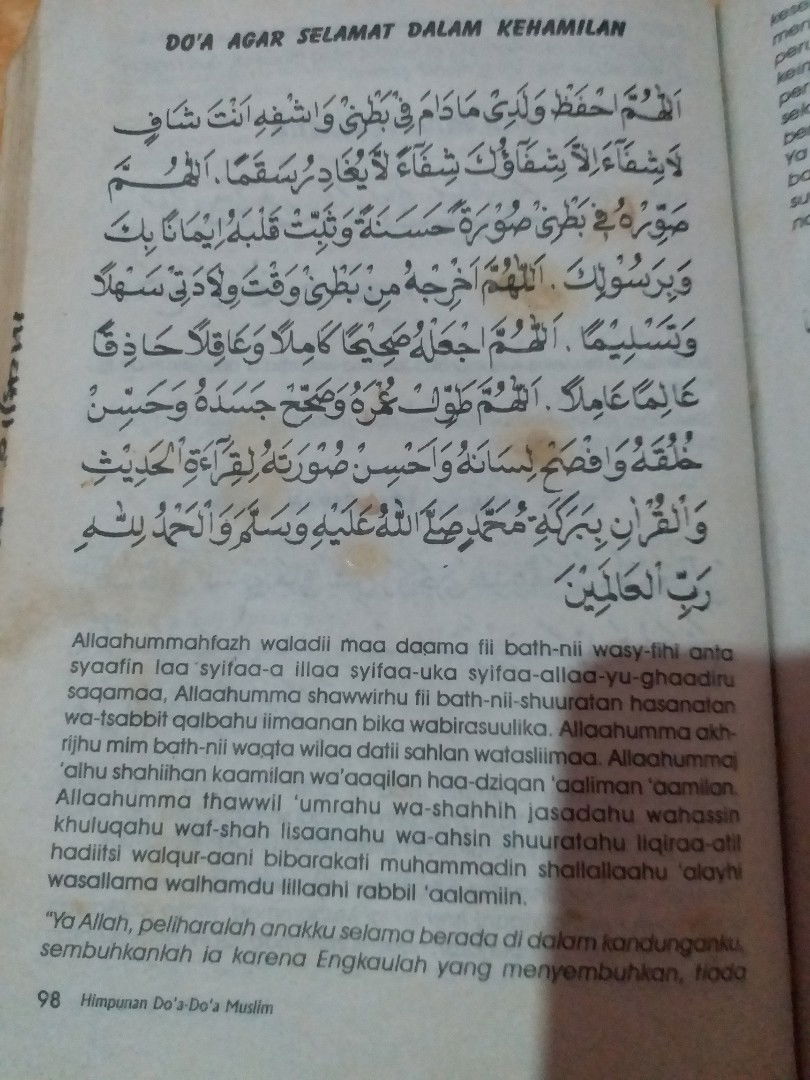 DO'A AGAR SELAMAT DALAM KEHAMILAN
اَللّٰهُمَّ احْفَظْ وَلَدِيْ مَا دَامَ فِيْ بَطْنِيْ وَاشْفِهِ اَنْتَ شَافٍ
لَا شِفَآءَ اِلَّا شِفَآؤُكَ شِفَآءً لَّا يُغَادِرُ سَقَمًا . اَللّٰهُمَّ
صَوِّرْهُ فِيْ بَطْنِيْ صُوْرَةً حَسَنَةً وَثَبِّتْ قَلْبَهُ اِيْمَانًا بِكَ
وَبِرَسُوْلِكَ . اَللّٰهُمَّ اَخْرِجْهُ مِنْ بَطْنِيْ وَقْتَ وِلَادَتِيْ سَهْلًا
وَتَسْلِيْمًا . اَللّٰهُمَّ اجْعَلْهُ صَحِيْحًا كَامِلًا وَعَاقِلًا حَاذِقًا
عَالِمًا عَامِلًا . اَللّٰهُمَّ طَوِّلْ عُمْرَهُ وَصَحِّحْ جَسَدَهُ وَحَسِّنْ
خُلُقَهُ وَافْصَحْ لِسَانَهُ وَاَحْسِنْ صُوْرَتَهُ لِقِرَآءَةِ الْحَدِيْثِ
وَالْقُرْاٰنِ بِبَرَكَةِ مُحَمَّدٍ صَلَّى اللّٰهُ عَلَيْهِ وَسَلَّمَ وَالْحَمْدُ لِلّٰهِ
رَبِّ الْعَالَمِيْنَ
Allaahummahfazh waladii maa daama fii bath-nii wasy-fihi anta
syaafin laa syifaa-a illaa syifaa-uka syifaa-allaa-yu-ghaadiru
saqamaa, Allaahumma shawwirhu fii bath-nii-shuuratan hasanatan
wa-tsabbit qalbahu iimaanan bika wabirasuulika. Allaahumma akh-
rijhu mim bath-nii waqta wilaa datii sahlan watasliimaa. Allaahummaj
'alhu shahiihan kaamilan wa'aaqilan haa-dziqan 'aaliman 'aamilan.
Allaahumma thawwil 'umrahu wa-shahhih jasadahu wahassin
khuluqahu waf-shah lisaanahu wa-ahsin shuuratahu liqiraa-atil
hadiitsi walqur-aani bibarakati muhammadin shallallaahu 'alayhi
wasallama walhamdu lillaahi rabbil 'aalamiin.
"Ya Allah, peliharalah anakku selama berada di dalam kandunganku,
sembuhkanlah ia karena Engkaulah yang menyembuhkan, tiada
98 Himpunan Do'a-Do'a Muslim